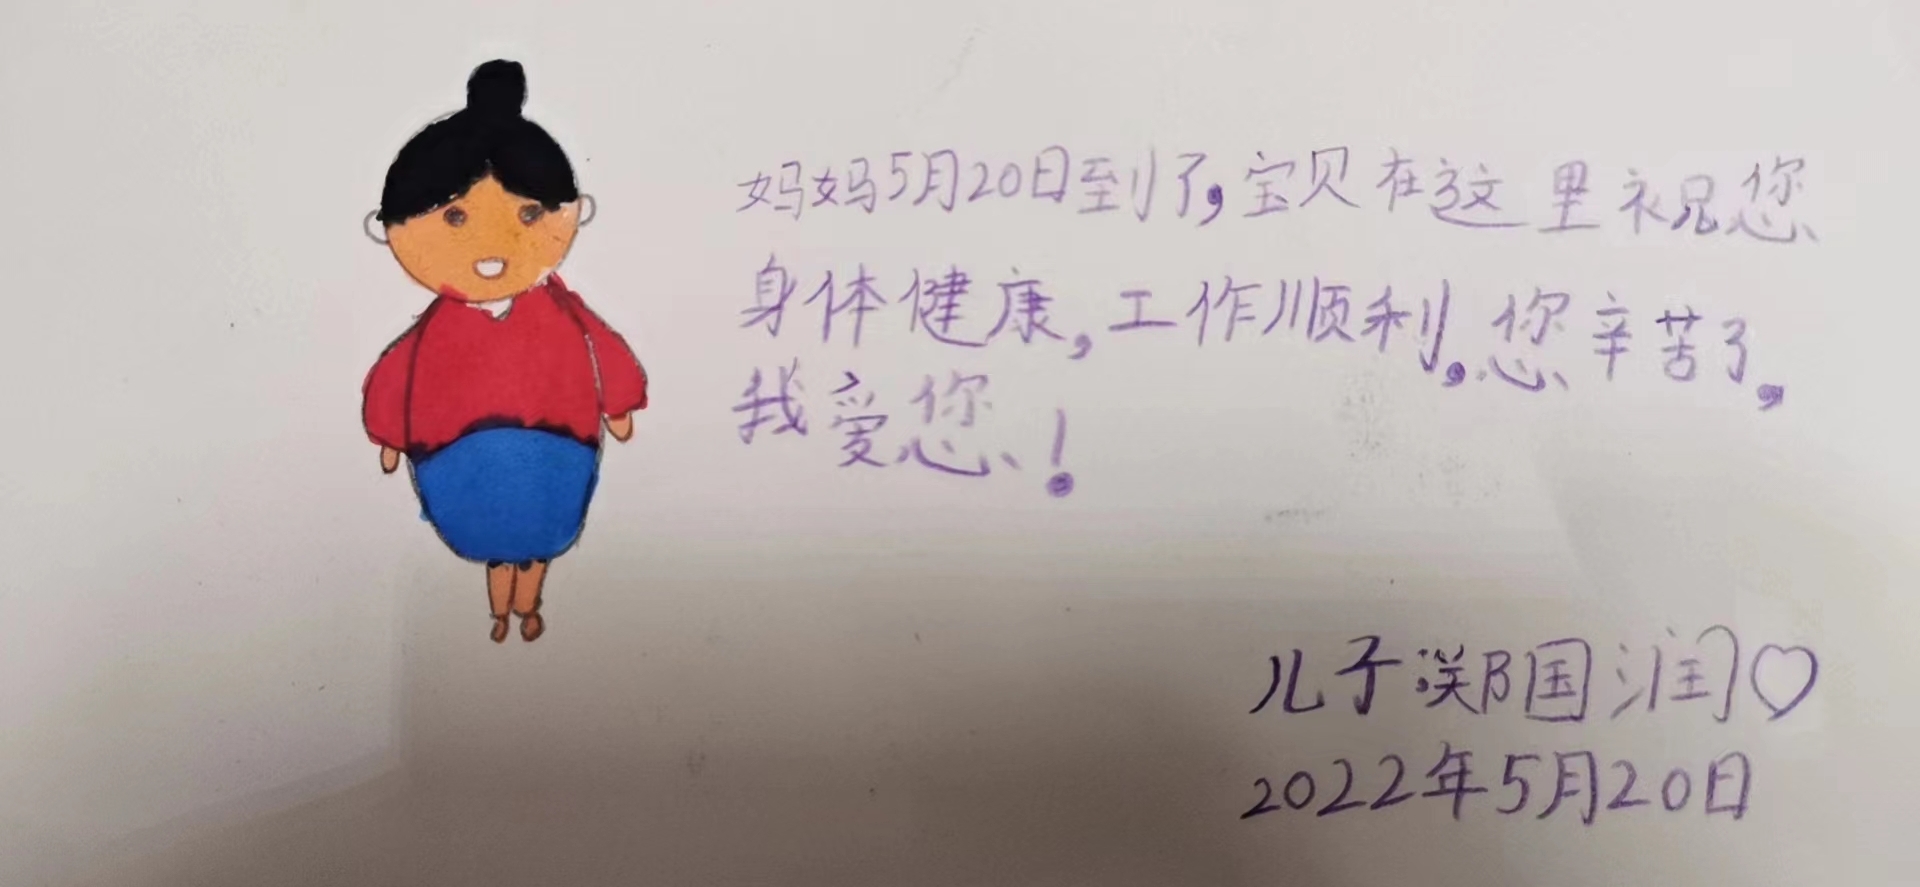 妈妈5月20日到了，宝贝在这里祝您
身体健康，工作顺利，您辛苦了，
我爱您！
儿子郑国润♡
2022年5月20日